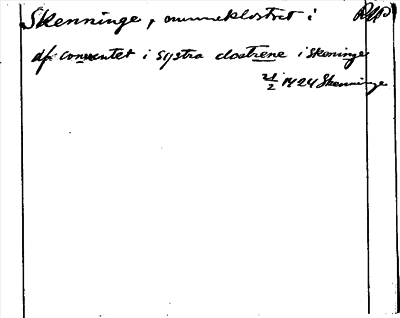 Skenninge, nunneklostret i RAP
af conuentet i systra clostrene i skeninge
21/2 1424 Skenninge